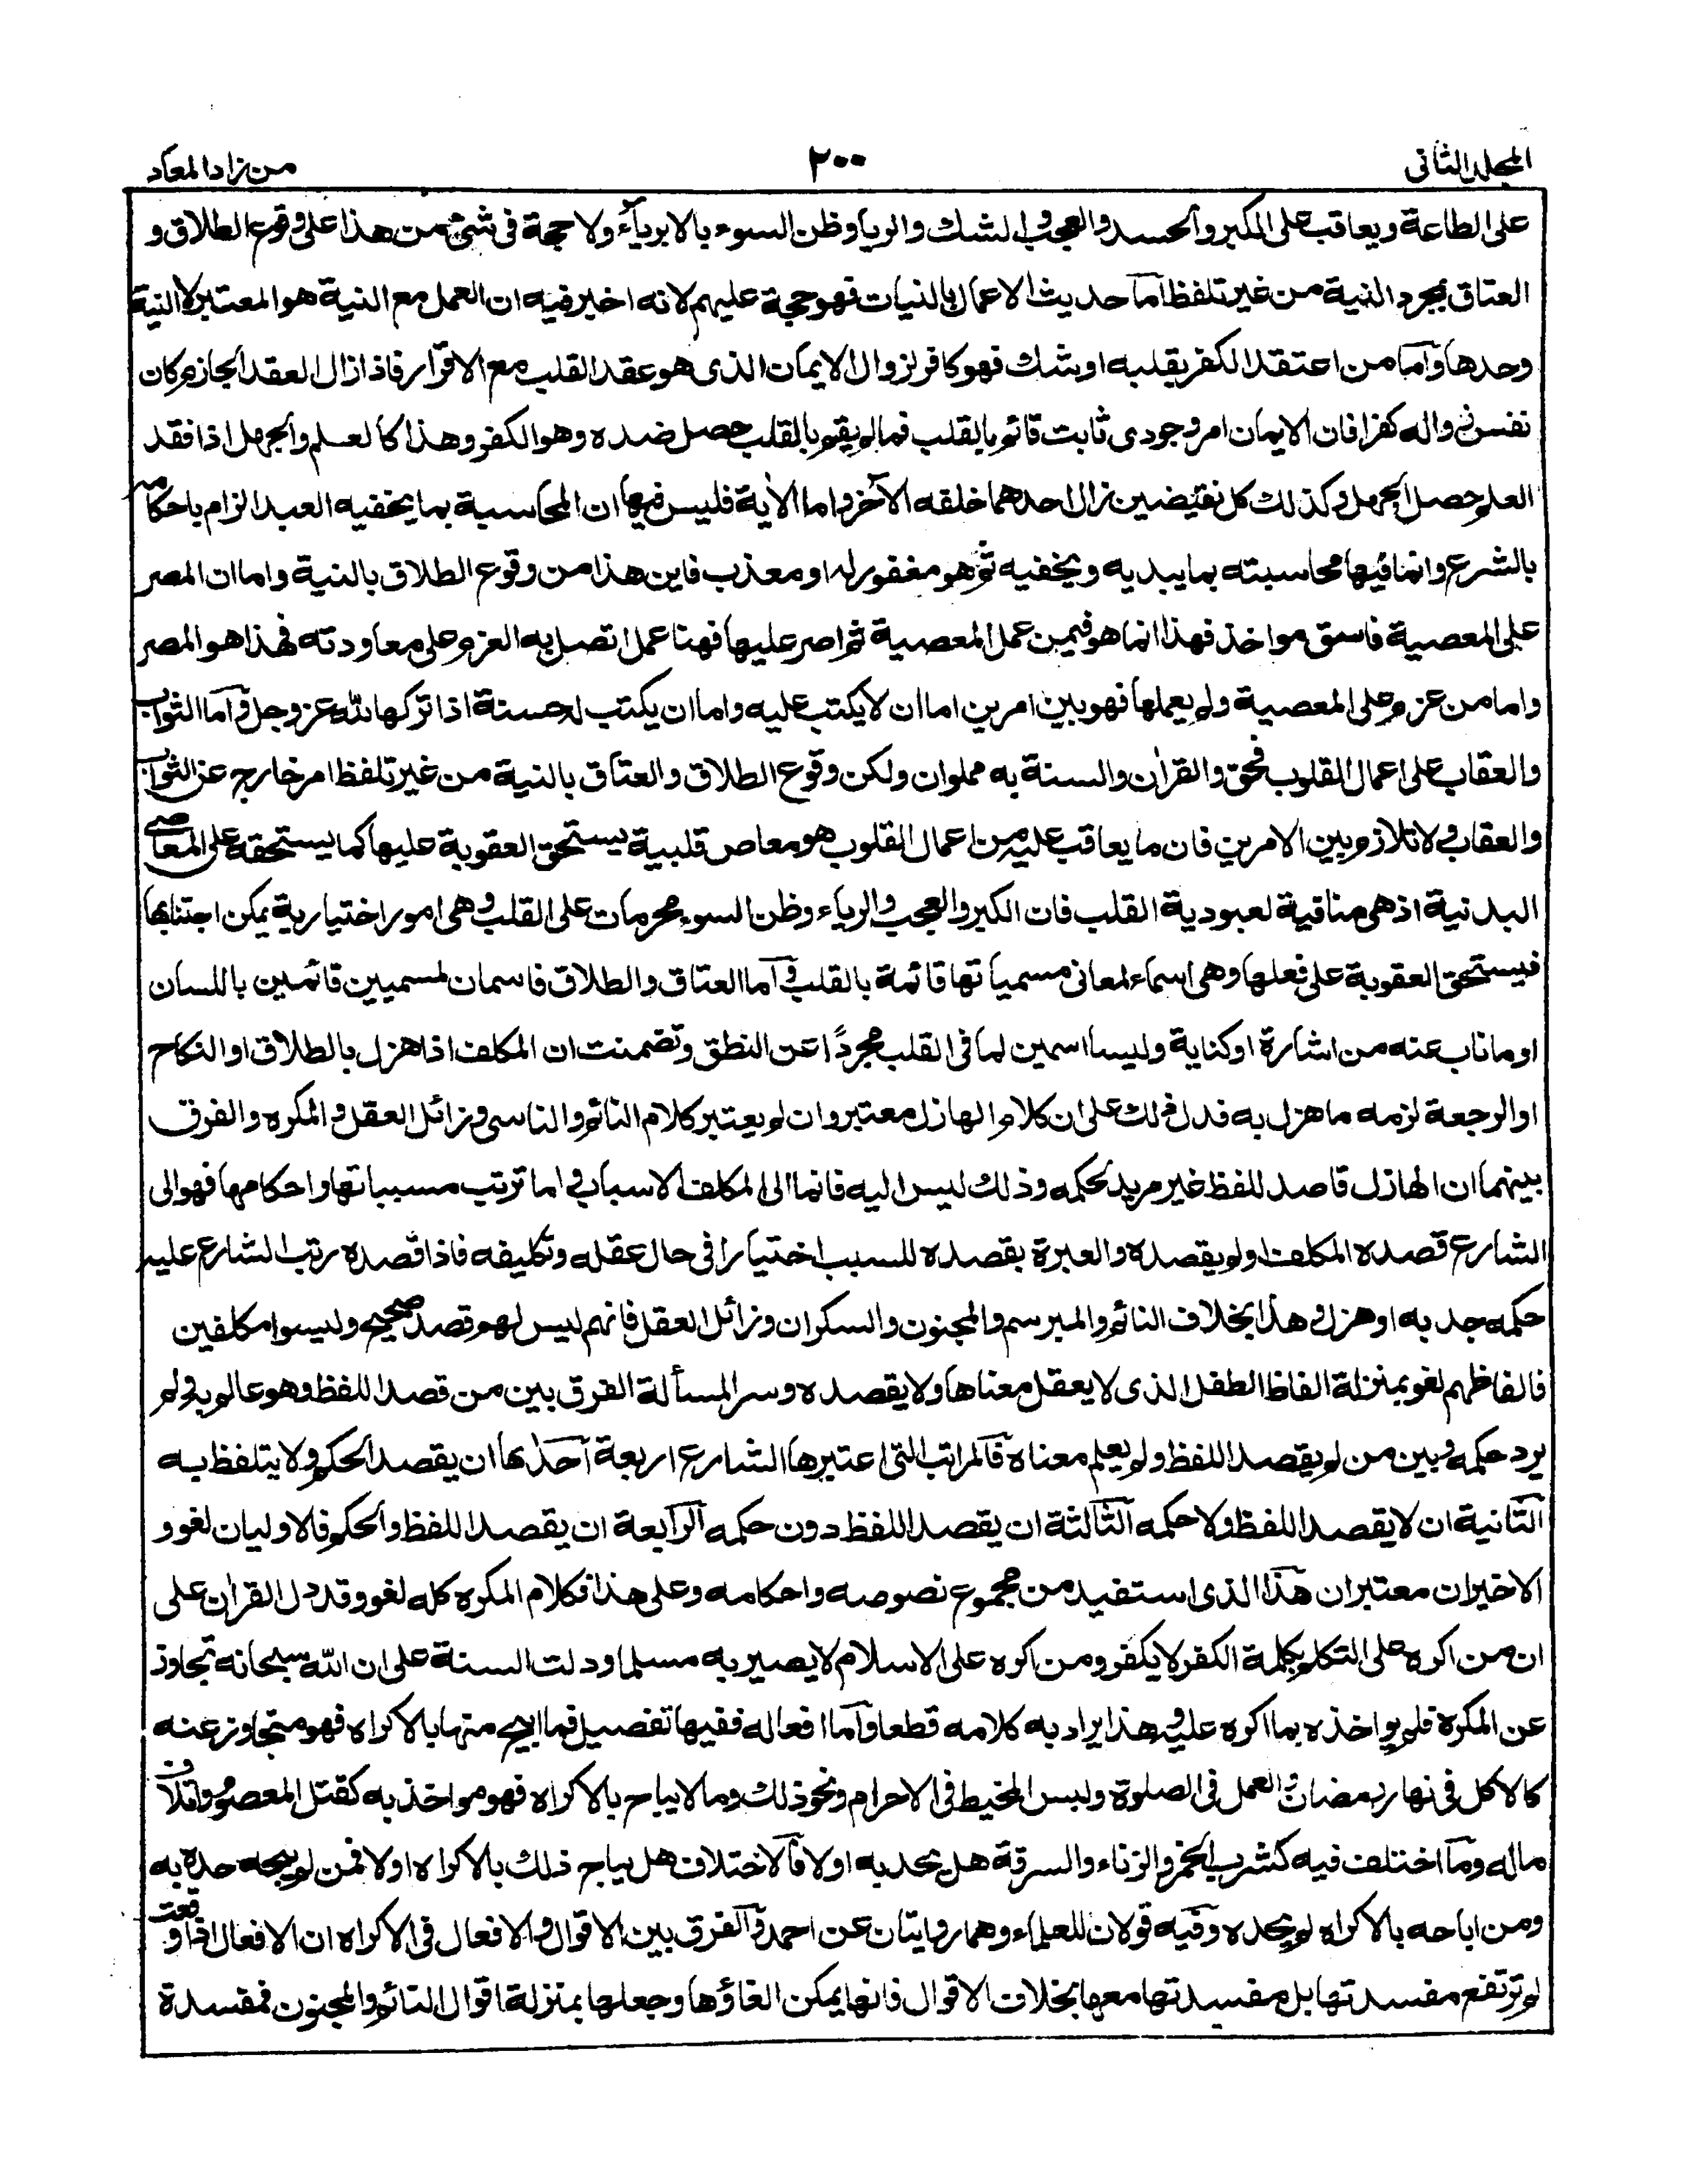 المجلد الثانی
٢٠٠
من زاد المعاد
على الطاعة ويعاقب على الكبر والحسد والعجب والشك والريا وظن السوء بالابرياء ولا حجة فى شئ من هذا على وقوع الطلاق و
العتاق بمجرد النية من غير تلفظ اما حديث الاعمال بالنيات فهو حجة عليهم لانه اخبر فيه ان العمل مع النية هو المعتبر لا النية
وحدها واما من اعتقد الكفر بقلبه او شك فهو كافر لزوال الايمان الذى هو عقد القلب مع الاقرار فاذا زال العقد الجازم كان
نفس زواله كفرا فان الايمان امر وجودى ثابت قائم بالقلب فما لم يقم بالقلب حصل ضده وهو الكفر وهذا كالعلم والجهل اذا فقد
العلم حصل الجهل وكذلك كل نقيضين زال احدهما خلفه الآخر واما الأية فليس فيها ان المحاسبة بما يخفيه العبد الزام باحكامه
بالشرع وانما فيها محاسبته بما يبديه ويخفيه ثم هو مغفور له او معذب فاين هذا من وقوع الطلاق بالنية واما ان المصر
على المعصية فاسق مواخذ فهذا انما هو فيمن عمل المعصية ثم اصر عليها فهنا عمل اتصل به العزم على معاودته فهذا هو المصر
واما من عزم على المعصية ولم يعملها فهو بين امرين اما ان لا يكتب عليه واما ان يكتب له حسنة اذا تركها لله عز وجل واما الثواب
والعقاب على اعمال القلوب فحق والقرأن والسنة به مملوان ولكن وقوع الطلاق والعتاق بالنية من غير تلفظ امر خارج عن الثواب
والعقاب ولا تلازم بين الامرين فان ما يعاقب عليه من اعمال القلوب هو معاص قلبية يستحق العقوبة عليها كما يستحقه على المعاصى
البدنية اذ هى منافية لعبودية القلب فان الكبر والعجب والرياء وظن السوء محرمات على القلب وهى امور اختيارية يمكن اجتنابها
فيستحق العقوبة على فعلها وهى اسماء لمعانى مسمياتها قائمة بالقلب واما العتاق والطلاق فاسمان لمسميين قائمين باللسان
او ما ناب عنه من اشارة او كناية وليسا اسمين لما فى القلب مجردًا عن النطق وتضمنت ان المكلف اذا هزل بالطلاق او النكاح
او الرجعة لزمه ما هزل به فدل ذلك على ان كلام الهازل معتبر وان لم يعتبر كلام النائم والناسى وزائل العقل والمكره والفرق
بينهما ان الهازل قاصد للفظ غير مريد لحكمه وذلك ليس اليه فانما الى المكلف الاسباب واما ترتب مسبباتها واحكامها فهو الى
الشارع قصده المكلف او لم يقصده والعبرة بقصده للسبب اختيارا فى حال عقله وتكليفه فاذا قصده رتب الشارع عليه
حكمه جد به او هزل وهذا بخلاف النائم والمبرسم والمجنون والسكران وزائل العقل فانهم ليس لهم قصد صحيح وليسوا مكلفين
فالفاظهم لغو بمنزلة الفاظ الطفل الذى لا يعقل معناها ولا يقصده وسر المسألة الفرق بين من قصد اللفظ وهو عالم به ولم
يرد حكمه وبين من لم يقصد اللفظ ولم يعلم معناه فالمراتب التى اعتبرها الشارع اربعة احدٰها ان يقصد الحكم ولا يتلفظ به
الثانية ان لا يقصد اللفظ ولا حكمه الثالثة ان يقصد اللفظ دون حكمه الرابعة ان يقصد اللفظ والحكم فالاوليان لغو و
الاخيران معتبران هذا الذى استفيد من مجموع نصوصه واحكامه وعلى هذا فكلام المكره كله لغو وقد دل القرأن على
ان من اكره على التكلم بكلمة الكفر لا يكفر ومن اكره على الاسلام لا يصير به مسلما ودلت السنة على ان الله سبحانه تجاوز
عن المكره فلم يواخذه بما اكره عليه وهذا يراد به كلامه قطعا واما افعاله ففيها تفصيل فما ابيح منها بالاكراه فهو متجاوز عنه
كالاكل فى نهار رمضان والعمل فى الصلوة ولبس المخيط فى الاحرام ونحو ذلك وما لا يباح بالاكراه فهو مواخذ به كقتل المعصوم واتلاف
ماله وما اختلف فيه كشرب الخمر والزناء والسرقة هل يحد به او لا فالاختلاف هل يباح ذلك بالاكراه او لا فمن لم يبحه حده به
ومن اباحه بالاكراه لم يحده وفيه قولان للعلماء وهما روايتان عن احمد والفرق بين الاقوال والافعال فى الاكراه ان الافعال اذا وقعت
لم ترتفع مفسدتها بل مفسدتها معها بخلاف الاقوال فانها يمكن الغاؤها وجعلها بمنزلة اقوال النائم والمجنون فمفسدة